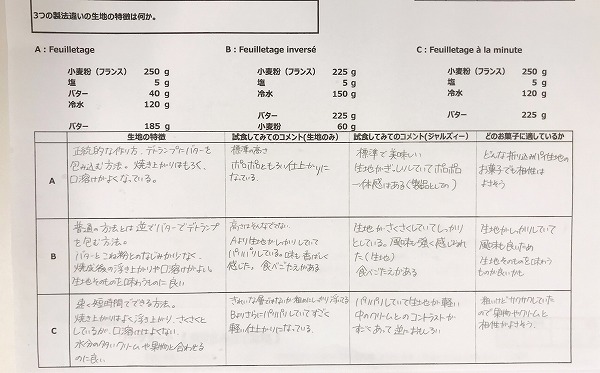 3つの製法違いの生地の特徴は何か。
A：Feuilletage
B：Feuilletage inversé
C：Feuilletage à la minute
小麦粉（フランス） 250 g
塩 5 g
バター 40 g
冷水 120 g
バター 185 g
小麦粉（フランス） 225 g
塩 5 g
冷水 150 g
バター 225 g
小麦粉 60 g
小麦粉（フランス） 250 g
塩 5 g
冷水 120 g
バター 225 g
生地の特徴
試食してみてのコメント(生地のみ)
試食してみてのコメント(ジャルズィー)
どのお菓子に適しているか
A
正統的な作り方、デトランプにバターを
包み込む方法。焼き上がりはもろく、
口溶けがよくなっている。
標準の高さ
ポロポロともろい仕上がりに
なっている.
標準で美味しい
生地がぎっしりしていてポロポロ
一体感はある(製品としての)
どんな折り込みパイ生地の
お菓子でも相性は
よさそう
B
普通の方法とは逆でバターでデトランプ
を包む方法。
バターとこね粉とのなじみがよく、
焼成後の浮き上がりや口溶けがよい。
生地そのものを味わうものに良い
高さはそんなでてない
Aより生地がしっかりしていて
パリパリしている。味も香ばしく
感じた。食べごたえがある
生地がさくさくしていてしっかり
としている。風味も強く感じられ
た(生地)
食べごたえがある
生地がしっかりしていて
風味も良いため
生地そのものを味わう
ものが良いかも
C
速く短時間でできる方法。
焼き上がりはよく浮き上がり、さくさくと
しているが、口溶けはよくない.
水分の多いクリームや果物と合わせるの
に良い.
きれいな層ではないが粗めにしっかり浮いてる
Bよりさらにパリパリしていてすごく
軽い仕上がりになっている.
パリパリしていて生地が軽い
中のクリームとのコントラストが
すごくあって逆におもしろい
粗いけどサクサクしていた
ので果物やクリームと
相性がよさそう.